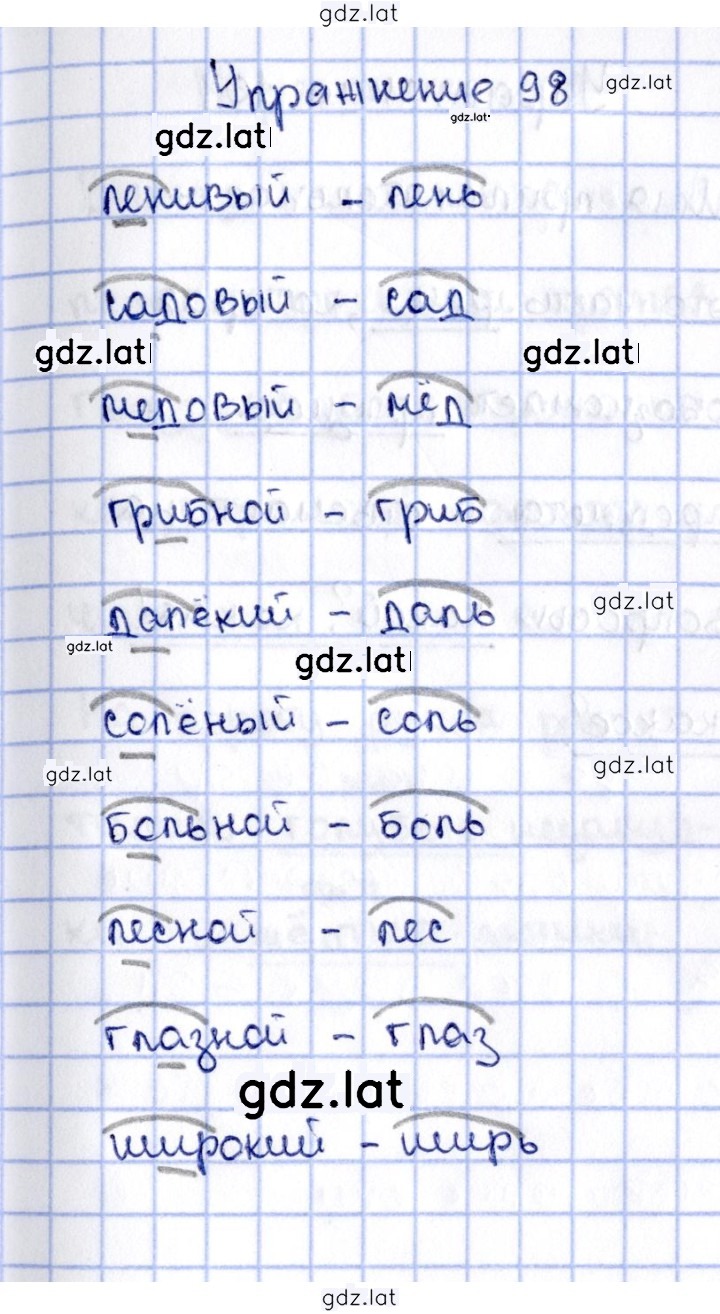 gdz.lat
Упражнение 98 gdz.lat
gdz.lat
gdz.lat
ленивый - лень
садовый - сад
gdz.lat gdz.lat
медовый - мёд
грибной - гриб
далёкий - даль gdz.lat
gdz.lat gdz.lat
солёный - соль
gdz.lat gdz.lat
больной - боль
лесной - лес
глазной - глаз
gdz.lat
широкий - ширь
gdz.lat